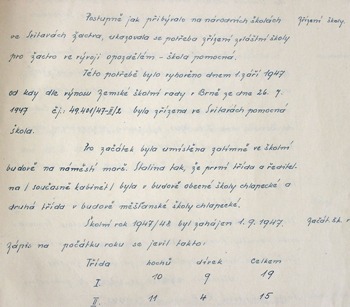 Postupně jak přibývalo na národních školách Zřízení školy.
ve Svitavách žactva, ukazovala se potřeba zřízení zvláštní školy
pro žactvo ve vývoji opozděném - škola pomocná.
Této potřebě bylo vyhověno dnem 1. září 1947
od kdy dle výnosu Zemské školní rady v Brně ze dne 26. 7.
1947 čj.: 49.401/47-II/2. byla zřízena ve Svitavách pomocná
škola.
Pro začátek byla umístěna zatímně ve školní
budově na náměstí marš. Stalina tak, že první třída a ředitel-
na / současně kabinet / byla v budově obecné školy chlapecké a
druhá třída v budově měšťanské školy chlapecké.
Školní rok 1947/48 byl zahájen 1. 9. 1947. Začát. šk.
Zápis na počátku roku se jevil takto:
Třída hochů dívek Celkem
I. 10 9 19
II. 11 4 15